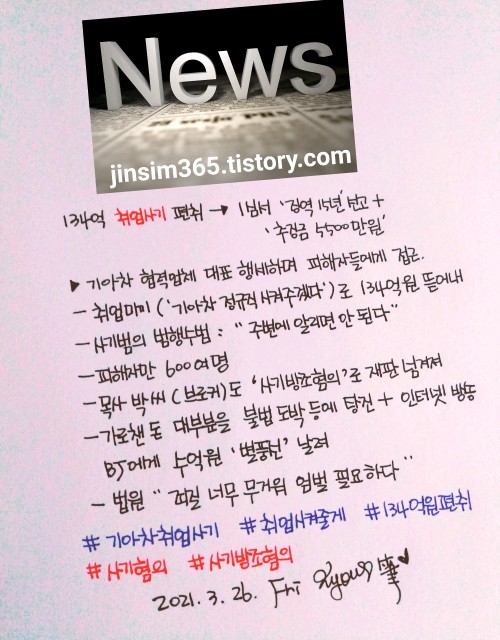 News
jinsim365.tistory.com
134억 취업사기 편취 → 1심서 '징역 15년' 선고 +
'추징금 5500만원'
▶ 기아차 협력업체 대표 행세하며 피해자들에게 접근.
- 취업미끼 ('기아차 정규직 시켜주겠다')로 134억원 뜯어내
- 사기범의 범행수법 : "주변에 알리면 안 된다"
- 피해자만 600여명
- 목사 박씨 (브로커)도 '사기방조혐의'로 재판 넘겨져
- 가로챈 돈 대부분을 불법 도박 등에 탕진 + 인터넷 방송
BJ에게 수억원 '별풍선' 날려
- 법원 "죄질 너무 무거워 엄벌 필요하다"
# 기아차취업사기 # 취업시켜줄게 #134억원편취
# 사기혐의 # 사기방조혐의
2021. 3. 26. Fri Kyou 筆♥